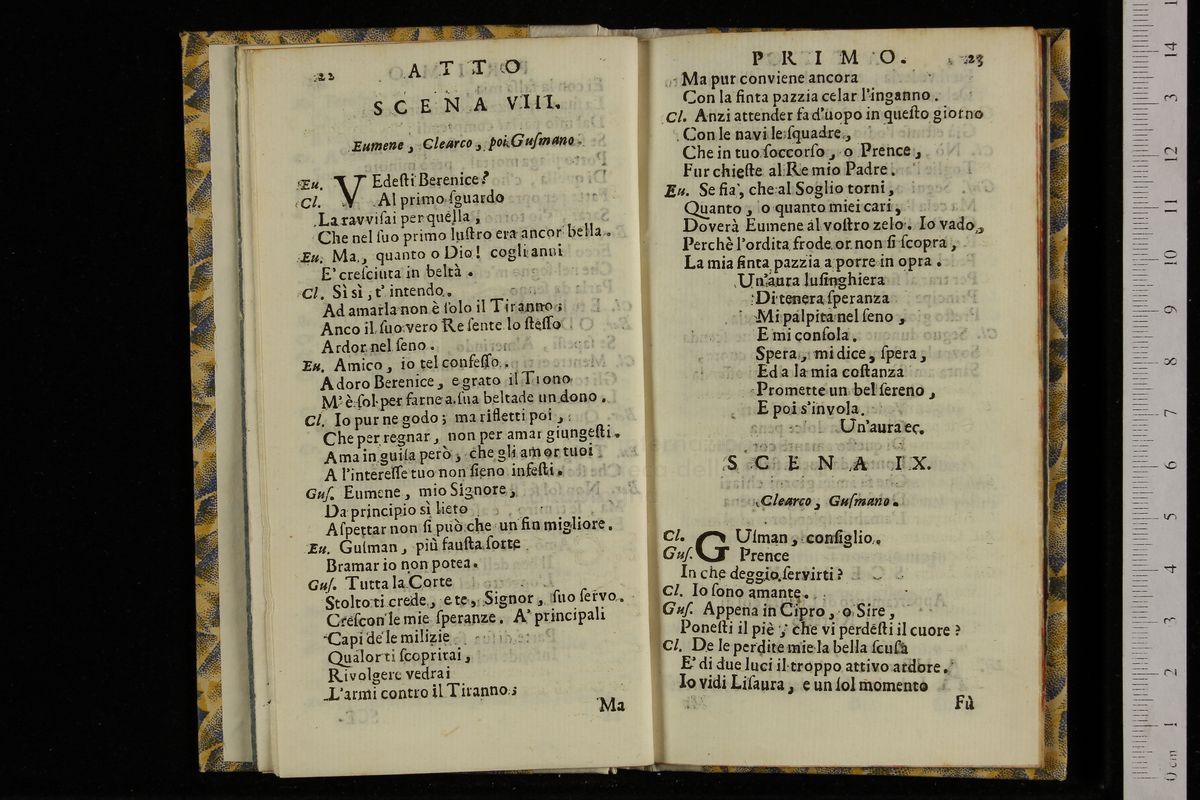 22 ATTO
SCENA VIII.
Eumene, Clearco, poi Guſmano.
Eu. VEdeſti Berenice?
Cl. Al primo ſguardo
La ravviſai per quella,
Che nel ſuo primo luſtro era ancor bella.
Eu. Ma, quanto o Dio! cogli anni
E' creſciuta in beltà.
Cl. Sì sì, t' intendo.
Ad amarla non è ſolo il Tiranno;
Anco il ſuo vero Re ſente lo ſteſſo
Ardor nel ſeno.
Eu. Amico, io tel confeſſo.
Adoro Berenice, e grato il Trono
M' è ſol per farne a ſua beltade un dono.
Cl. Io pur ne godo; ma rifletti poi,
Che per regnar, non per amar giungeſti.
Ama in guiſa però, che gli amor tuoi
A l'intereſſe tuo non ſieno infeſti.
Guſ. Eumene, mio Signore,
Da principio sì lieto
Aſpettar non ſi può che un fin migliore.
Eu. Guſman, più fauſta ſorte
Bramar io non potea.
Guſ. Tutta la Corte
Stolto ti crede, e te, Signor, ſuo ſervo.
Creſcon le mie ſperanze. A' principali
Capi de le milizie
Qualor ti ſcoprirai,
Rivolgere vedrai
L'armi contro il Tiranno;
Ma
PRIMO. 23
Ma pur conviene ancora
Con la finta pazzia celar l'inganno.
Cl. Anzi attender fa d'uopo in queſto giorno
Con le navi le ſquadre,
Che in tuo ſoccorſo, o Prence,
Fur chieſte al Re mio Padre.
Eu. Se fia, che al Soglio torni,
Quanto, o quanto miei cari,
Doverà Eumene al voſtro zelo. Io vado,
Perchè l'ordita frode or non ſi ſcopra,
La mia finta pazzia a porre in opra.
Un'aura luſinghiera
Di tenera ſperanza
Mi palpita nel ſeno,
E mi conſola.
Spera, mi dice, ſpera,
Ed a la mia coſtanza
Promette un bel ſereno,
E poi s'invola.
Un'aura ec.
SCENA IX.
Clearco, Guſmano.
Cl. GUſman, conſiglio.
Guſ. Prence
In che deggio ſervirti?
Cl. Io ſono amante.
Guſ. Appena in Cipro, o Sire,
Poneſti il piè, che vi perdeſti il cuore?
Cl. De le perdite mie la bella ſcuſa
E' di due luci il troppo attivo ardore.
Io vidi Liſaura, e un ſol momento
Fù
14
3
13
12
11
10
9
8
7
6
5
4
3
2
1
0 cm